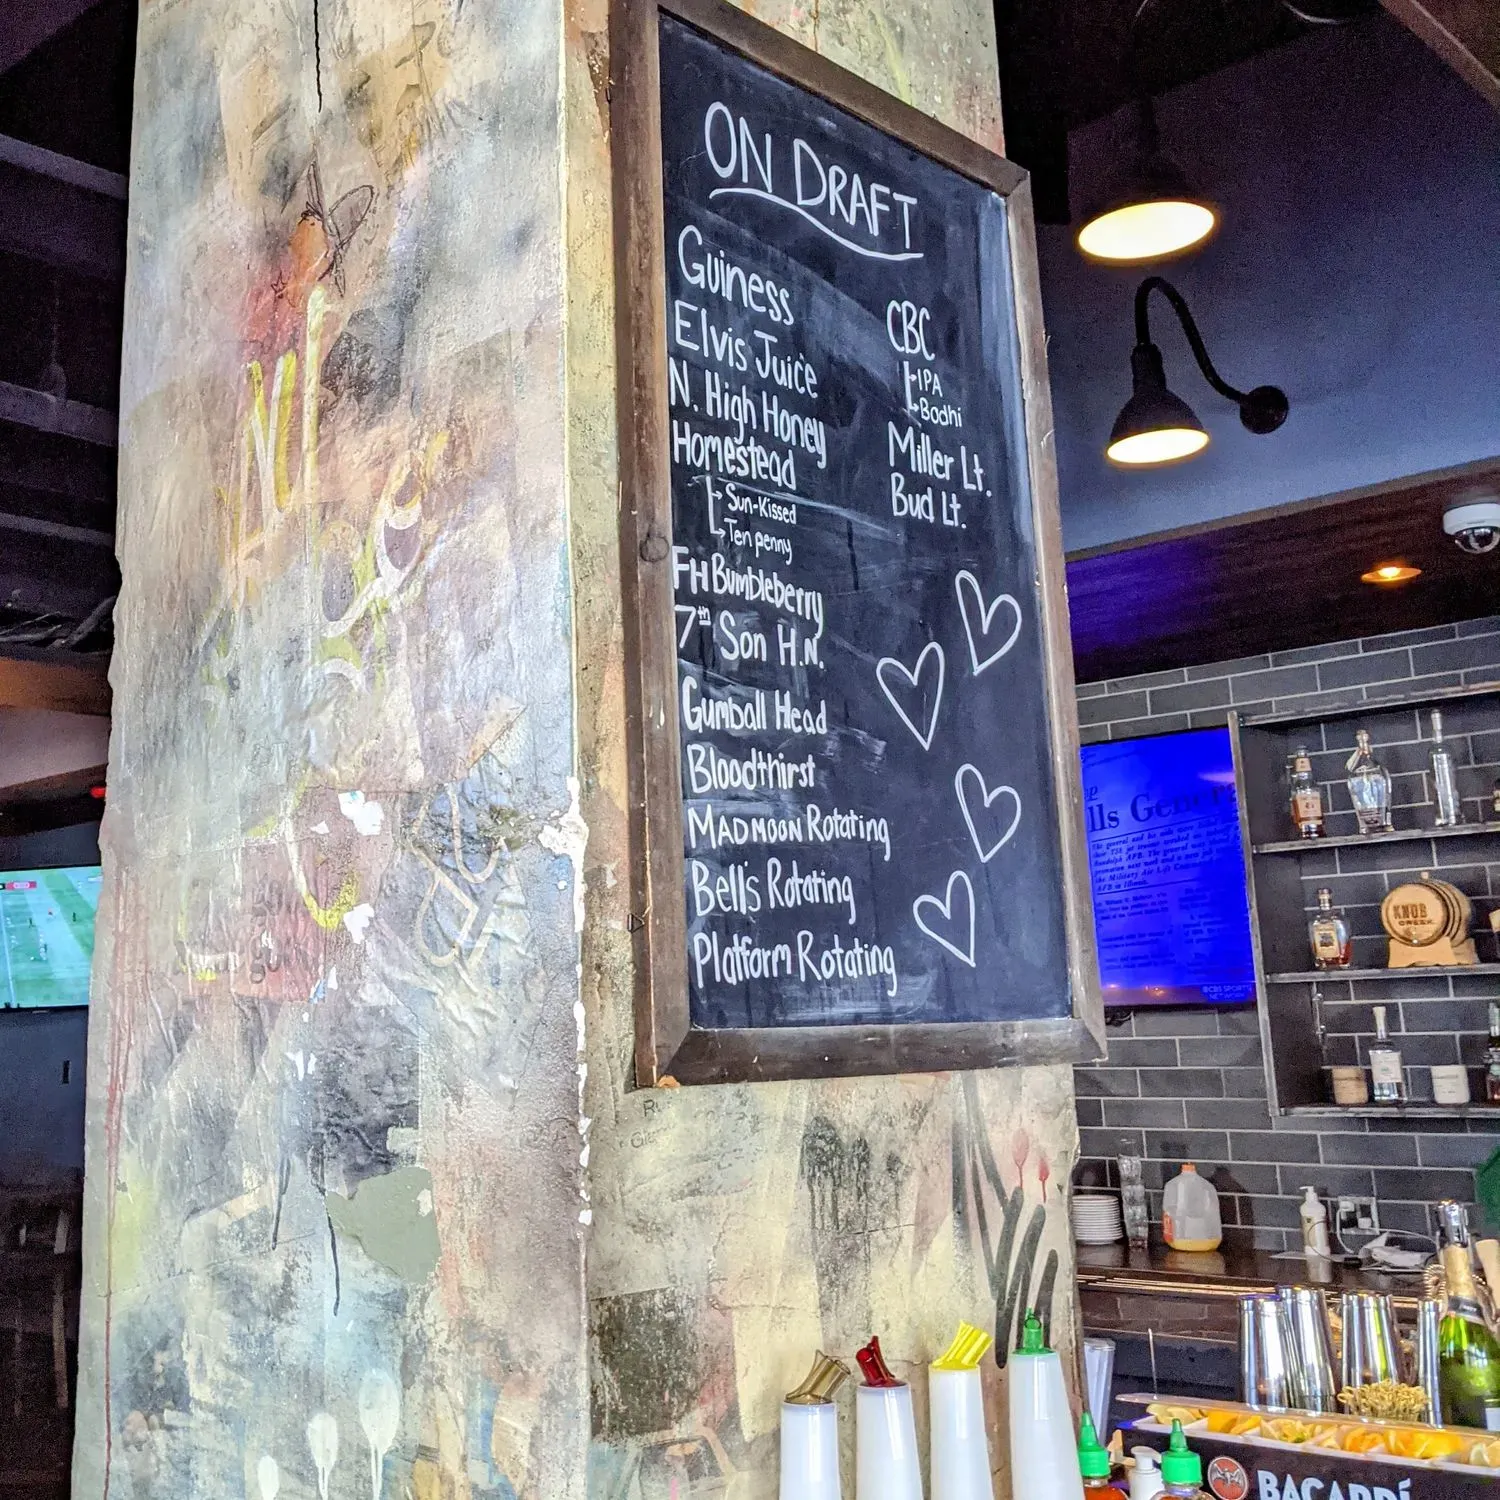 ON DRAFT
Guiness
Elvis Juice
N. High Honey
Homestead
Sun-Kissed
Ten penny
FH Bumbleberry
7th Son H.N.
Gumball Head
Bloodthirst
MADMOON Rotating
Bell's Rotating
Platform Rotating
CBC
IPA
Bodhi
Miller Lt.
Bud Lt.
KNOB
CREEK
CBS SPORTS
NETWORK
BACARDÍ